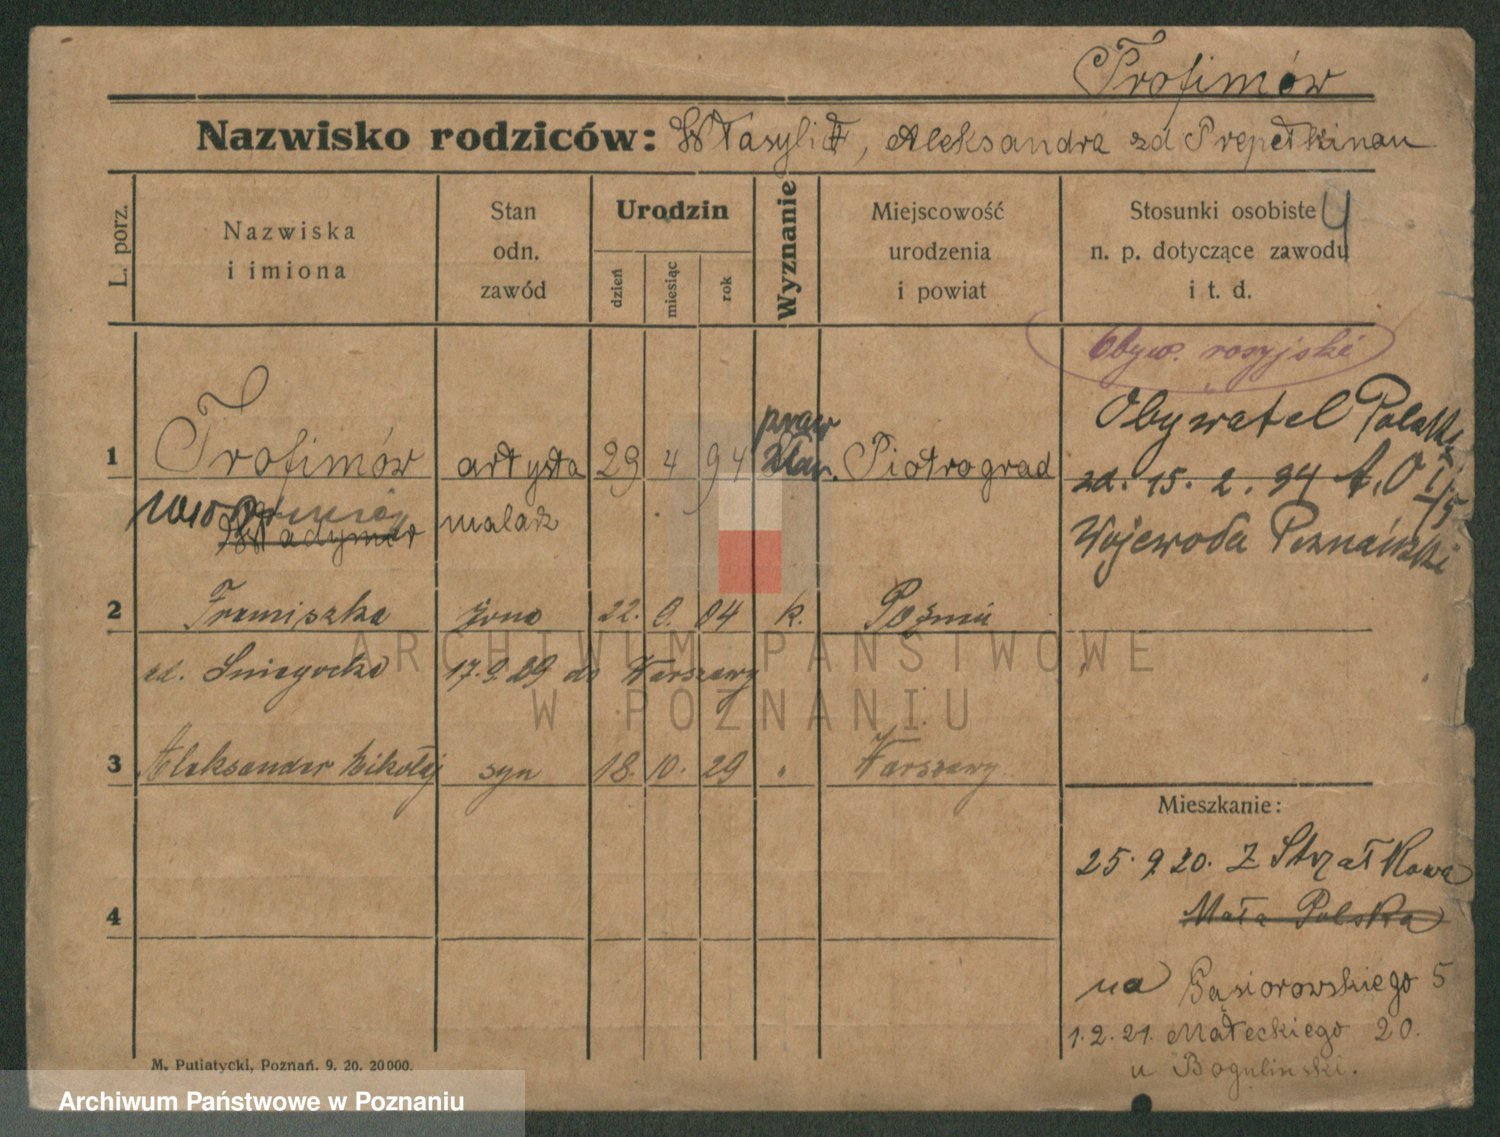 Trofimów
Nazwisko rodziców: Aleksandra zd Prepełkinau
L. porz.
Nazwiska
i imiona
Stan
odn.
zawód
Urodzin
dzień
miesiąc
rok
Wyznanie
Miejscowość
urodzenia
i powiat
Stosunki osobiste
n. p. dotyczące zawodu
i t. d.
Obyw. rosyjski
1
Trofimów
artysta
29
4
94
praw
Piotrograd
Obywatel Polski
zd. 15. 2. 34
Wojewoda Poznański
malarz
2
Franciszka
żona
22.
04
k.
Poznań
zd. Śniegocka
17.9.29 do Warszawy
3
Aleksander Mikołaj
syn
18.
10.
29
"
Warszawy
Mieszkanie:
25. 9. 20. z Strzałkowa
Mała Polska
4
na Gąsiorowskiego 5
1.2.21. Małeckiego 20.
u Bogulinski.
M. Putiatycki, Poznań. 9. 20. 20000.
ARCHIWUM PAŃSTWOWE
W POZNANIU
Archiwum Państwowe w Poznaniu